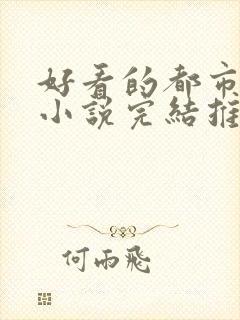 好看的都市
小說完結推
何雨飛